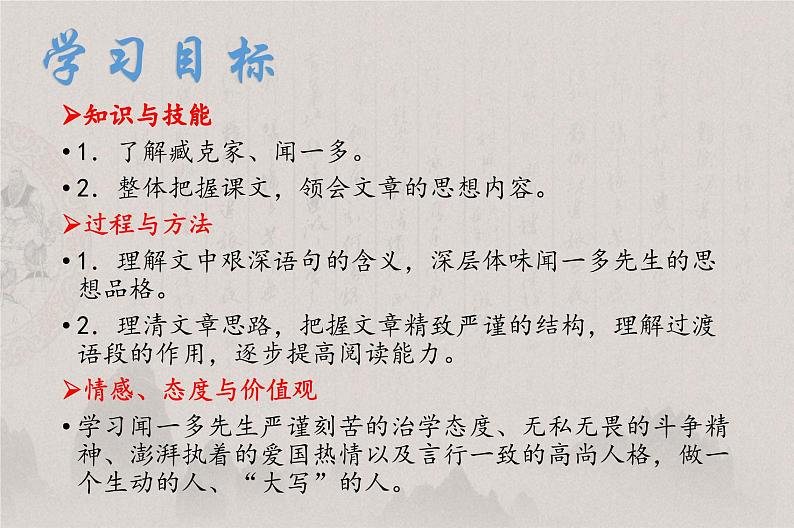 学习目标
➢知识与技能
•1．了解臧克家、闻一多。
•2．整体把握课文，领会文章的思想内容。
➢过程与方法
•1．理解文中艰深语句的含义，深层体味闻一多先生的思
想品格。
•2．理清文章思路，把握文章精致严谨的结构，理解过渡
语段的作用，逐步提高阅读能力。
➢情感、态度与价值观
•学习闻一多先生严谨刻苦的治学态度、无私无畏的斗争精
神、澎湃执着的爱国热情以及言行一致的高尚人格，做一
个生动的人、“大写”的人。